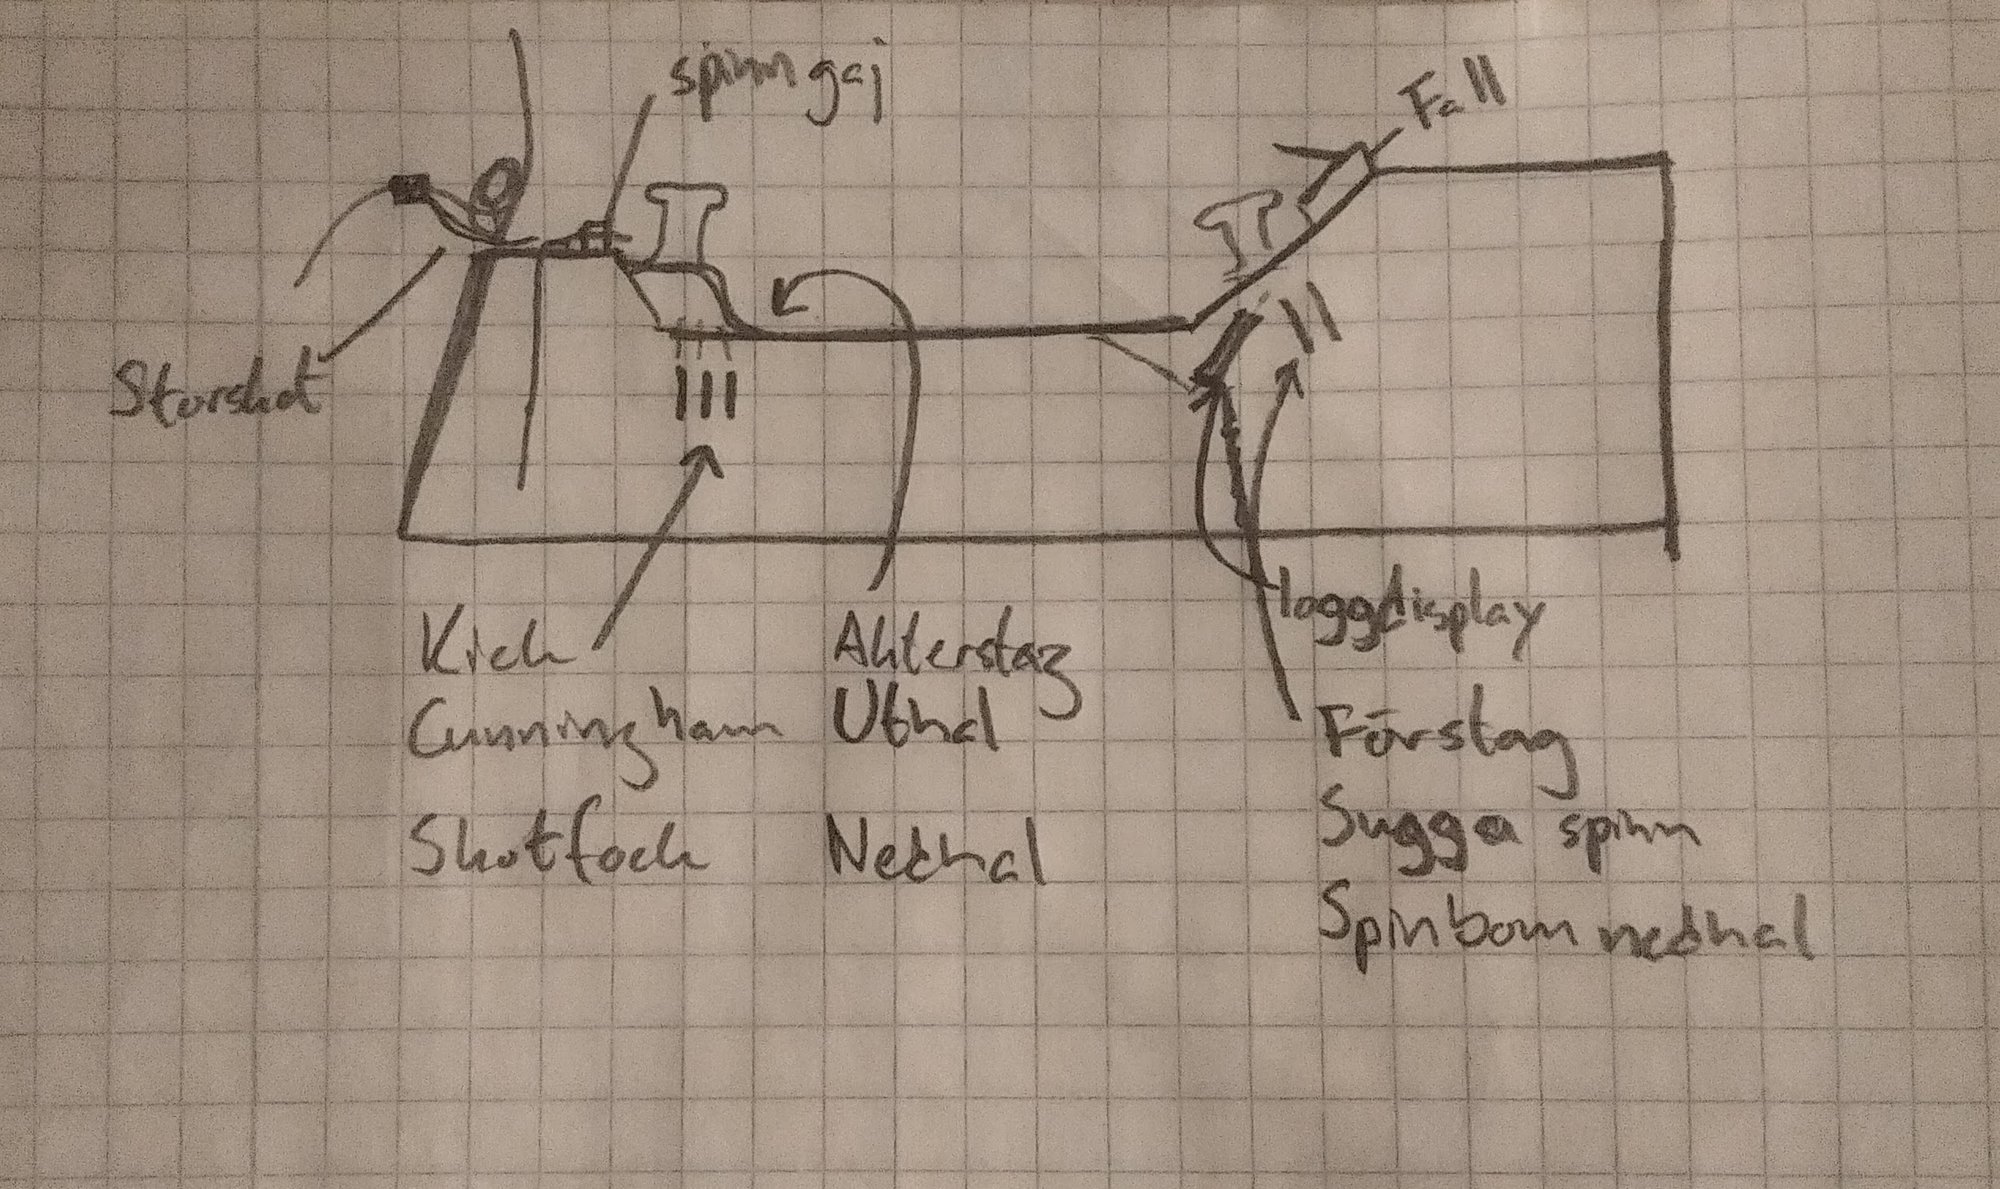 spinn gaj
Fall
Storskot
loggdisplay
Kick
Cunningham
Skotfock
Akterstag
Uthal
Nedhal
Förstag
Sugga spinn
Spinbom nedhal